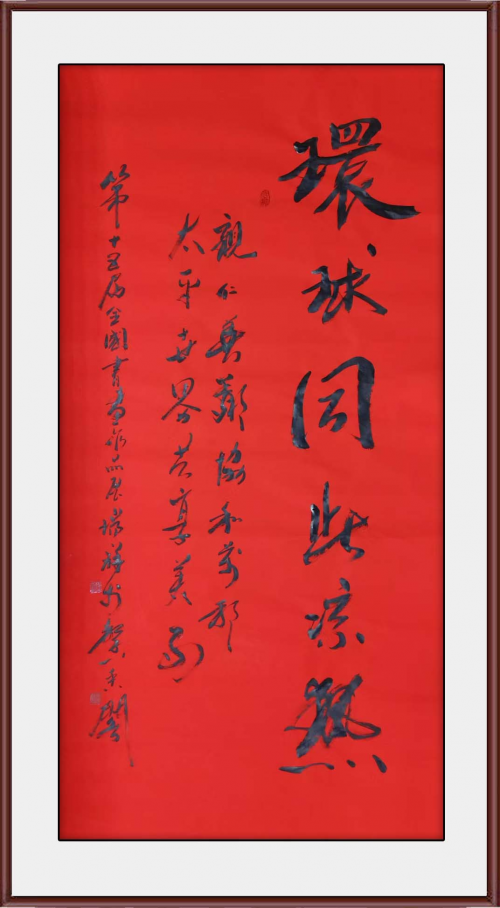 環球同此凉熱
親仁善鄰協和萬邦
太平世界共享美
第十五届全國書畫作品展瑞祥於